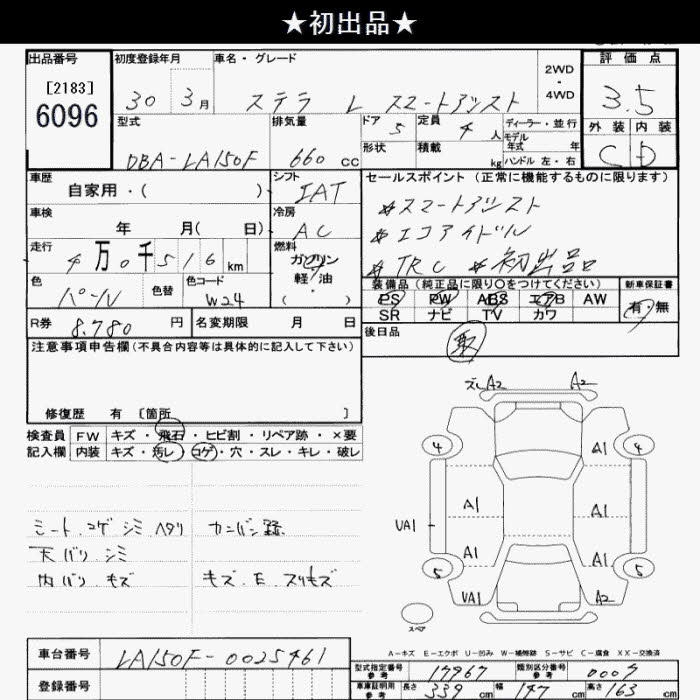 ★初出品★
出品番号 初度登録年月 車名・グレード 2WD・4WD 評価点
[2183]
6096
30 3月 ステラ L スマートアシスト 3.5
型式 排気量 ドア 5 定員 4人 ディーラー・並行 外装 内装
モデル年式 年
DBA-LA150F 660cc 形状 積載 kg ハンドル 左・右 C D
車歴 シフト セールスポイント(正常に機能するものに限ります)
自家用・( ) IAT
*スマートアシスト
車検 冷房
年 月( 日) AC
*エコアイドル
走行 燃料
4万0千516km ガソリン・軽油・( )
*TRC *初出品
色 色替 色コード 装備品(純正品に限り○をつけてください) 新車保証書
パール W24 PS PW ABS エアB AW 有・無
SR ナビ TV カワ
R券 8,780円 名変期限 月 日 後日品
注意事項申告欄(不具合内容等は具体的に記入して下さい)
取
修復歴 有 [箇所 ]
検査員 FW キズ・飛石・ヒビ割・リペア跡・×要
記入欄 内装 キズ・汚レ・コゲ・穴・スレ・キレ・破レ
シート コゲ シミ ヘタリ カンバン跡
天バリ シミ
内バリ キズ キズ.E.スリキズ
ズレA2 A2
4 A1 4
A1 A1
UA1
A1 A1
5 5
UA1 A2
スペア
A-キズ E-エクボ U-凹み W-補修跡 S-サビ C-腐食 XX-交換済
車台番号 LA150F-0025461
登録番号
型式指定番号 参考 17967 類別区分番号 参考 0007
車庫証明用 参考 長さ 339cm 幅 147cm 高さ 163cm